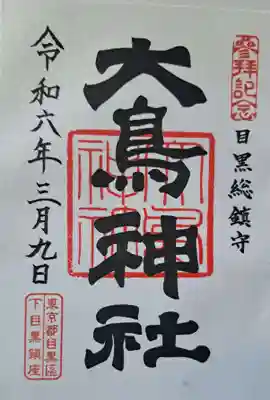 參拜記念
目黒総鎮守
大鳥神社
令和六年三月九日
東京都目黒区
下目黒鎮座